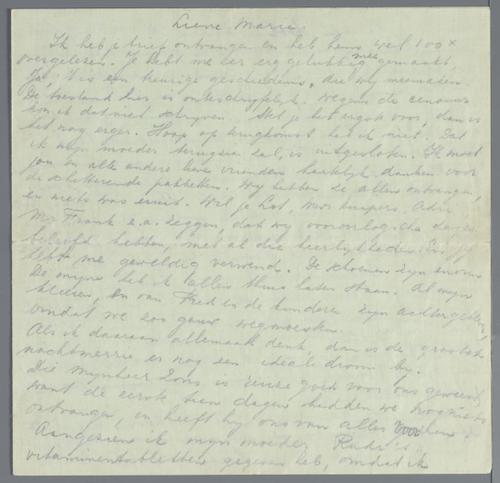 Lieve Marie
Ik heb je brief ontvangen en heb hem wel 100 x
overgelezen. Je hebt me er erg gelukkig mee gemaakt.
Ja, 't is een treurige geschiedenis, die wij meemaken
De toestand hier is onbeschryfelyk. Wegens de censuur
kan ik dat niet schryven. Stel je het ergste voor, dan is
het nog erger. Hoop op terugkomst heb ik niet. Dat
ik myn moeder terugzien zal, is uitgesloten. Ik moet
jou en alle andere lieve vrienden hartelyk danken voor
de schitterende pakketten. Wy hebben de alles ontvangen,
en niets was eruit. Wil je Lot, Mevr Kuipers, Adri
Mr. Frank e.a. zeggen, dat wy vooroorlogsche dagen
beleefd hebben, met al die heerlykheden. Je
hebt me geweldig verwend. De schoenen zyn enorm
De myne heb ik alles thuis laten staan. Al myn
kleeren, en van Fred en de kinderen zyn achtergebleven,
omdat we zoo gauw weg moesten.
Als ik daaraan allemaal denk dan is de grootste
nachtmerrie er nog een ideale droom by.
Die mynheer Zons is reuze goed voor ons geweest,
want de eerste tien dagen hadden we nog niets
ontvangen, en heeft hy ons van alles voorzien
Aangezien ik myn moeder Rudi's
vitaminentabletten gegeven heb, omdat ik